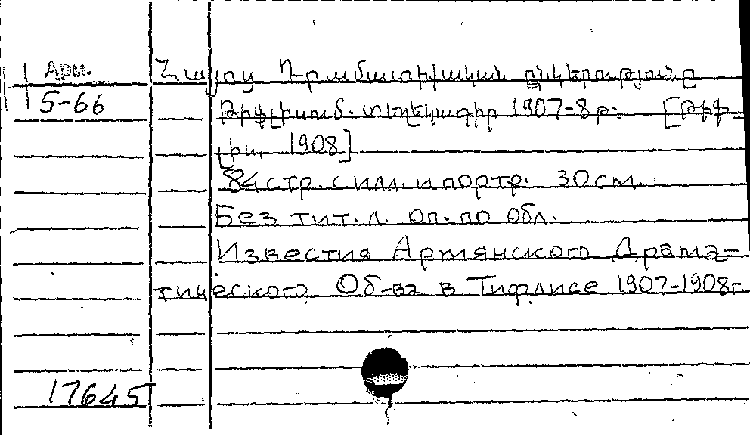 Арм.
Հայոց Դրամատիկական ընկերությունը
5-66
Թիֆլիսում. տեղեկագիր 1907-8 թ. [Թիֆ-
լիս, 1908]
84 стр. с илл. и портр. 30 см.
Без тит. л. оп. по обл.
Известия Армянского Драма-
тического Об-ва в Тифлисе 1907-1908 г.
17645